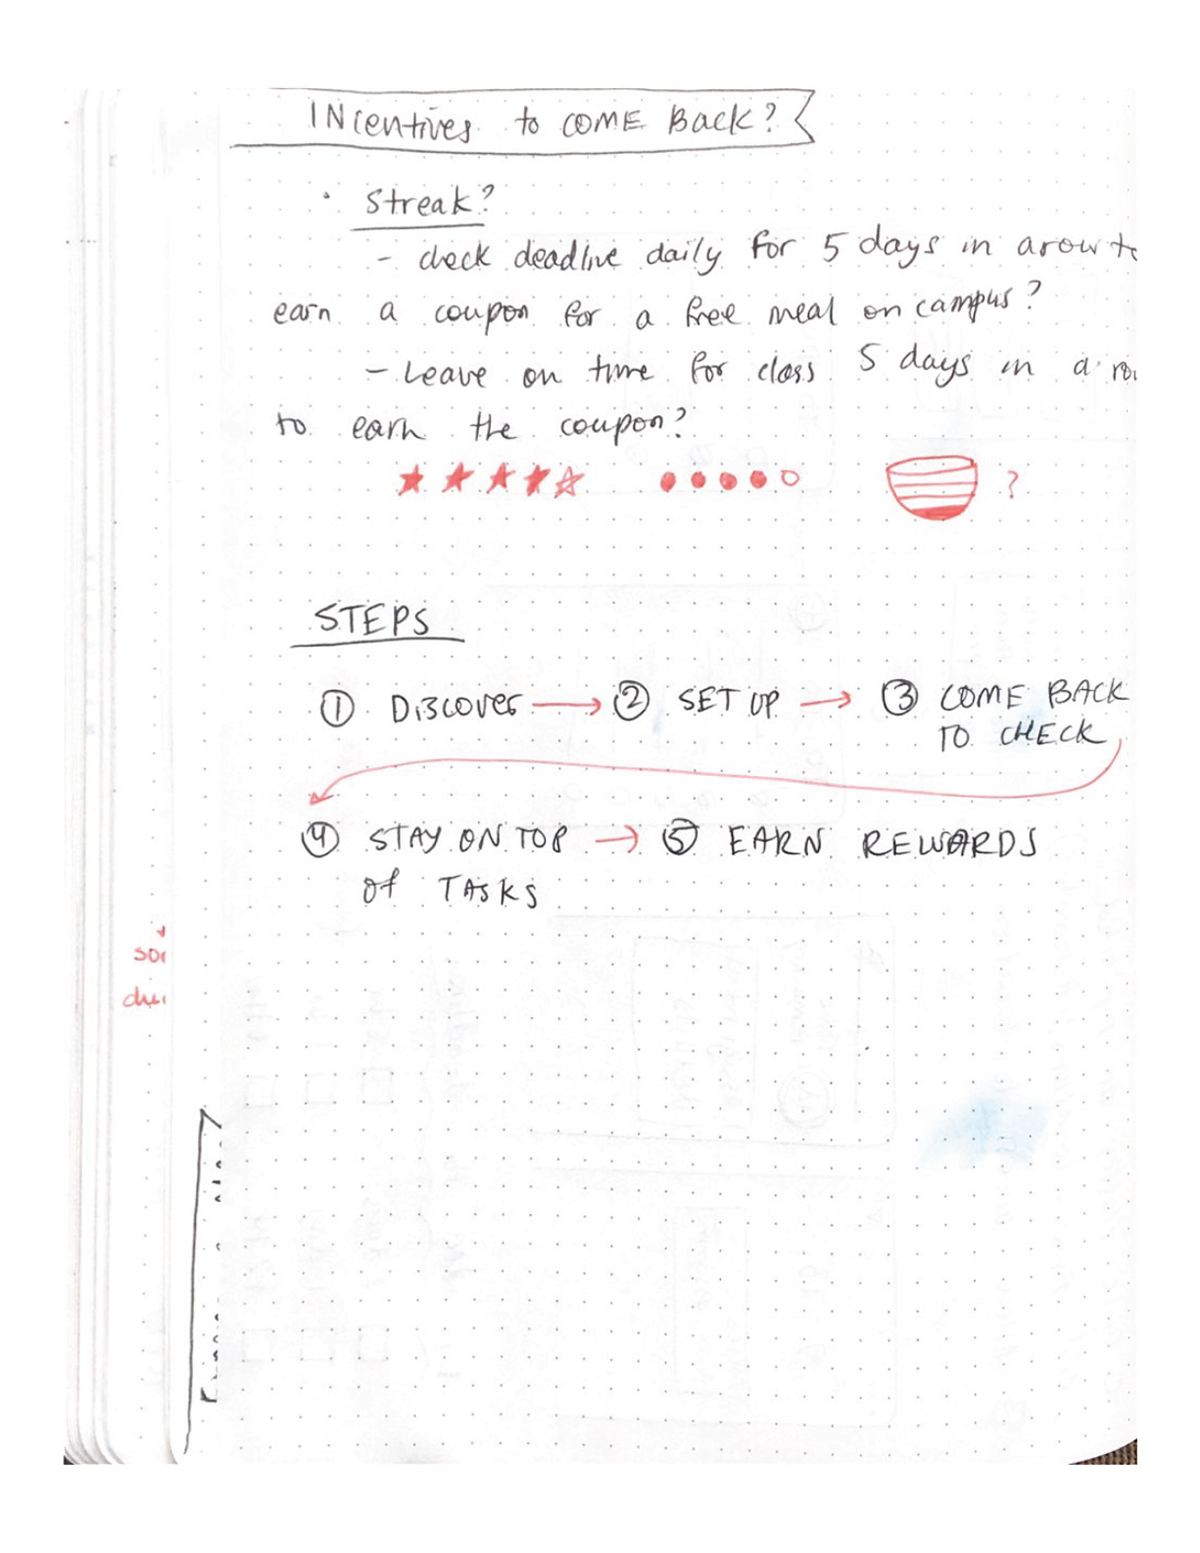 INcentives to COME Back?
• Streak?
- check deadline daily for 5 days in a row to
earn a coupon for a free meal on campus?
- Leave on time for class 5 days in a
to earn the coupon?
?
STEPS
① Discover → ② SET UP → ③ COME BACK
TO CHECK
④ STAY ON TOP → ⑤ EARN REWARDS
of TASKS